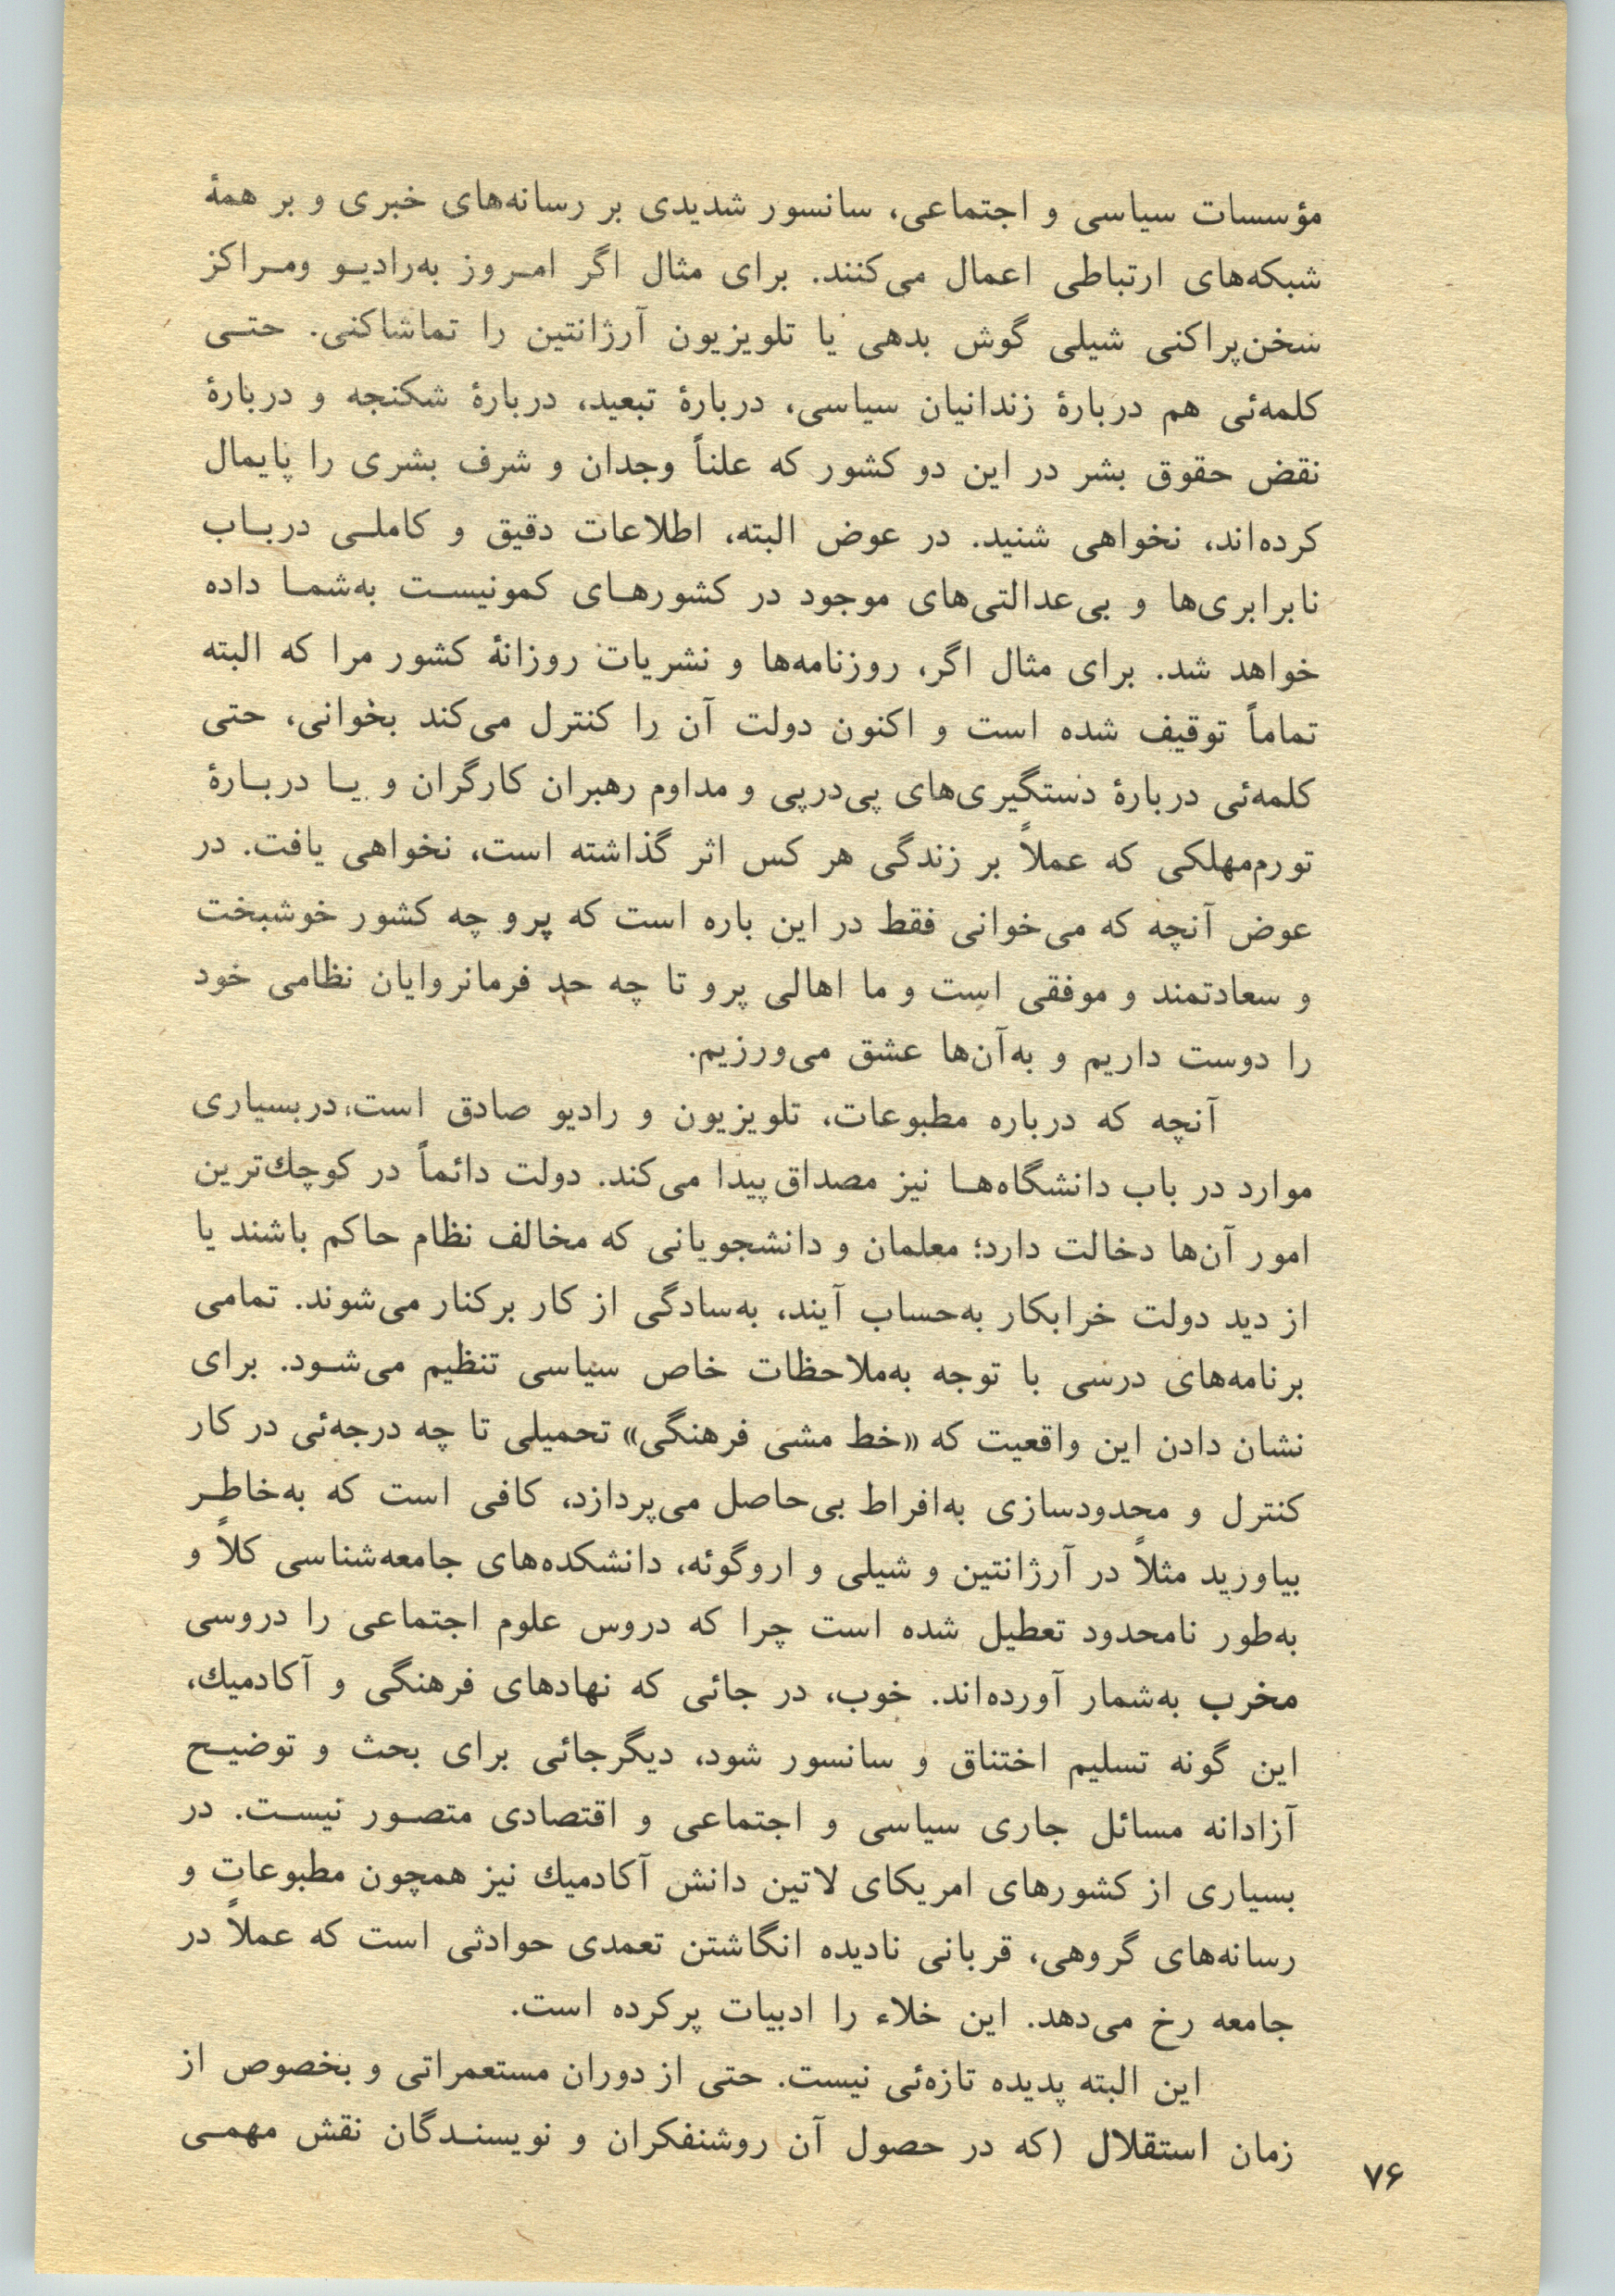 مؤسسات سیاسی و اجتماعی، سانسور شدیدی بر رسانه‌های خبری و بر همهٔ
شبکه‌های ارتباطی اعمال می‌کنند. برای مثال اگر امـروز به‌رادیـو ومـراکز
سخن‌پراکنی شیلی گوش بدهی یا تلویزیون آرژانتین را تماشاکنی. حتـی
کلمه‌ئی هم دربارهٔ زندانیان سیاسی، دربارهٔ تبعید، دربارهٔ شکنجه و دربارهٔ
نقض حقوق بشر در این دو کشور که علناً وجدان و شرف بشری را پایمال
کرده‌اند، نخواهی شنید. در عوض البته، اطلاعات دقیق و کاملـی دربـاب
نابرابری‌ها و بی‌عدالتی‌های موجود در کشورهـای کمونیسـت به‌شمـا داده
خواهد شد. برای مثال اگر، روزنامه‌ها و نشریات روزانهٔ کشور مرا که البته
تماماً توقیف شده است و اکنون دولت آن را کنترل می‌کند بخوانی، حتی
کلمه‌ئی دربارهٔ دستگیری‌های پی‌درپی و مداوم رهبران کارگران و یـا دربـارهٔ
تورم‌مهلکی که عملاً بر زندگی هر کس اثر گذاشته است، نخواهی یافت. در
عوض آنچه که می‌خوانی فقط در این باره است که پرو چه کشور خوشبخت
و سعادتمند و موفقی است و ما اهالی پرو تا چه حد فرمانروایان نظامی خود
را دوست داریم و به‌آن‌ها عشق می‌ورزیم.
آنچه که درباره مطبوعات، تلویزیون و رادیو صادق است، دربسیاری
موارد در باب دانشگاه‌هـا نیز مصداق‌پیدا می‌کند. دولت دائماً در کوچك‌ترین
امور آن‌ها دخالت دارد؛ معلمان و دانشجویانی که مخالف نظام حاکم باشند یا
از دید دولت خرابکار به‌حساب آیند، به‌سادگی از کار برکنار می‌شوند. تمامی
برنامه‌های درسی با توجه به‌ملاحظات خاص سیاسی تنظیم می‌شـود. برای
نشان دادن این واقعیت که «خط مشی فرهنگی» تحمیلی تا چه درجه‌ئی در کار
کنترل و محدودسازی به‌افراط بی‌حاصل می‌پردازد، کافی است که به‌خاطـر
بیاورید مثلاً در آرژانتین و شیلی و اروگوئه، دانشکده‌های جامعه‌شناسی کلاً و
به‌طور نامحدود تعطیل شده است چرا که دروس علوم اجتماعی را دروسی
مخرب به‌شمار آورده‌اند. خوب، در جائی که نهادهای فرهنگی و آکادمیك،
این گونه تسلیم اختناق و سانسور شود، دیگرجائی برای بحث و توضیـح
آزادانه مسائل جاری سیاسی و اجتماعی و اقتصادی متصـور نیسـت. در
بسیاری از کشورهای امریکای لاتین دانش آکادمیك نیز همچون مطبوعات و
رسانه‌های گروهی، قربانی نادیده انگاشتن تعمدی حوادثی است که عملاً در
جامعه رخ می‌دهد. این خلاء را ادبیات پرکرده است.
این البته پدیده تازه‌ئی نیست. حتی از دوران مستعمراتی و بخصوص از
زمان استقلال (که در حصول آن روشنفکران و نویسنـدگان نقش مهمـی
۷۶